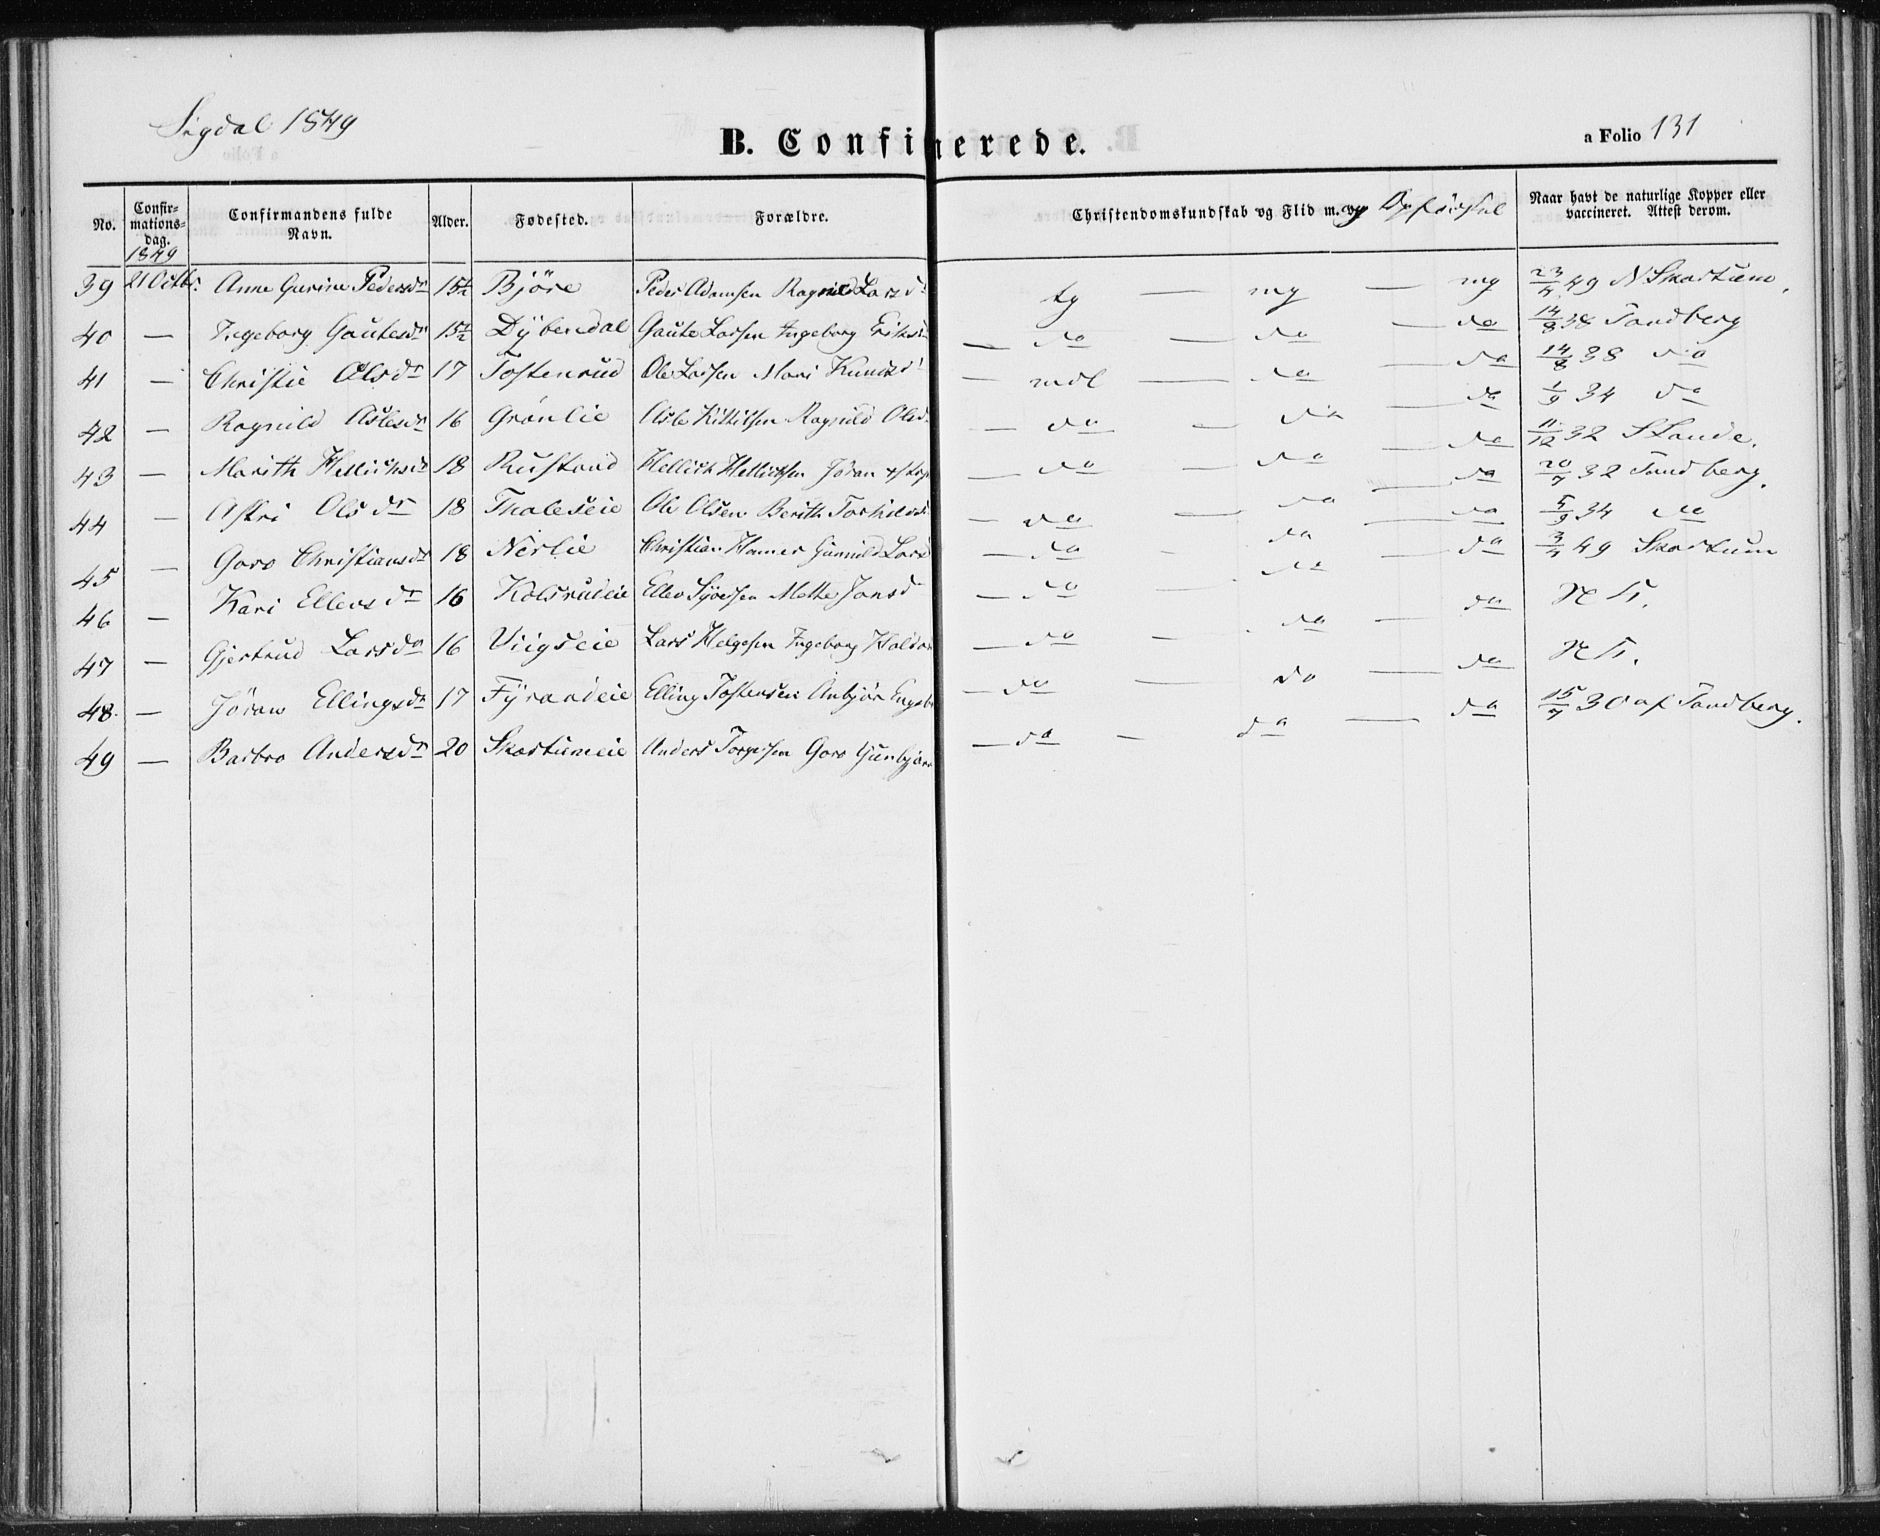 Sigdal 1849
B. Confirmerede.
a Folio 131
No.
Confir-
mations-
dag.
Confirmandens fulde
Navn.
Alder.
Fødested.
Forældre.
Christendomskundskab og Flid m. og Opførsel
Naar havt de naturlige Kopper eller
vaccineret. Attest derom.
1849
39 21 Octbr. Anne Gurine Pedersdr 15½ Björe Peder Adamsen Ragnild Larsd tg — mg — mg 23/4 49 N Skartum.
40 — Ingeborg Gautesdr 15½ Dÿbendal Gaute Larsen Ingeborg Eriksd — do — do — do 14/8 38 Sandberg
41 — Christie Olsdr 17 Tostenrud Ole Larsen Mari Knudsd — mdl — do — do 14/8 38 do
42 — Ragnild Aslesdr 16 Grönlie Asle Kittilsen Ragnild Olsd — do — do — do 1/9 34 do
43 — Marith Hellichsdr 18 Rustand Hellich Hellichsen Jöran — do — do — do 11/12 32 Lande.
44 — Astri Olsdr 18 Thaleseie Ole Olsen Berith — do — do — do 20/7 32 Sandberg.
45 — Goro Christiansdr 18 Nerlie Christian Hamer Gunnild Larsd — do — do — do 5/9 34 do
46 — Kari Ellevsdr 16 Kolsrudeie Ellev Mette Jonsd — do — do — do 3/4 49 Skartum
47 — Gjertrud Larsdr 16 Viigseie Lars Helgesen Ingeborg — do — do — do
48. — Jöran Ellingsdr 17 Fÿrandeie Elling Tostensen Anbjör — do — do — do
49 — Barbro Andersdr 20 Skartumeie Anders Torgersen Goro Gunbjörn — do — do — do 15/7 30 af Sandberg.